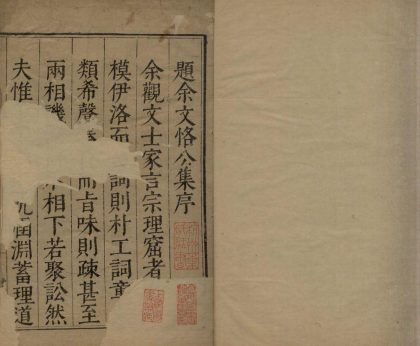 題余文恪公集序
余觀文士家言宗理窟者
模伊洛而詞則村工詞章
類希聲而旨味則疎甚至
兩相譏相下若聚訟然
夫惟淵蓄理道